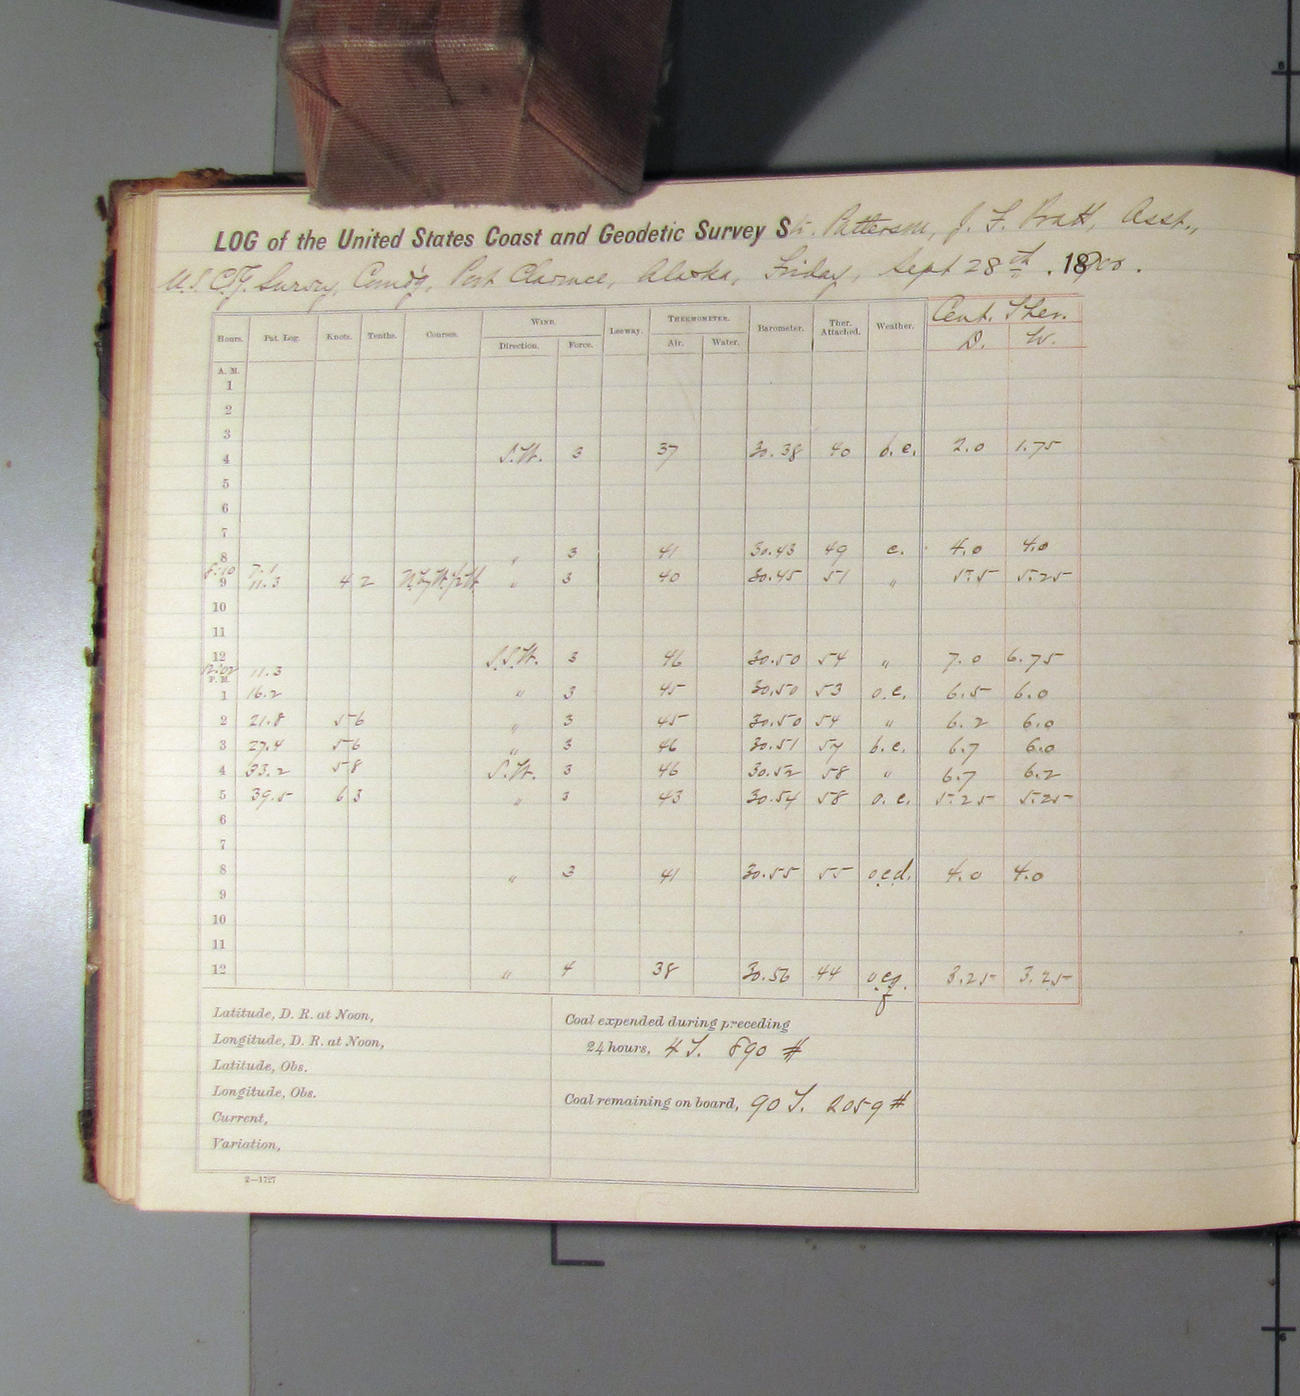 LOG of the United States Coast and Geodetic Survey Str. Patterson, J. F. Pratt, Asst.,
U.S.C.&G. Survey, Comd'g, Port Clarence, Alaska, Friday, Sept 28th, 1900.
Hours. Pat. Log. Knots. Tenths. Courses. WIND. Direction. Force. Leeway. THERMOMETER. Air. Water. Barometer. Ther. Attached. Weather. Cent. Ther. D. W.
A. M.
1
2
3
4 S.W. 3 37 30.38 40 b.c. 2.0 1.75
5
6
7
8 " 3 41 30.43 49 c. 4.0 4.0
8:10 7.1
9 11.3 4 2 " 3 40 30.45 51 " 5.5 5.25
10
11
12 S.S.W. 3 46 30.50 54 " 7.0 6.75
12:02 11.3
P. M.
1 16.2 " 3 45 30.50 53 o.c. 6.5 6.0
2 21.8 5 6 " 3 45 30.50 54 " 6.2 6.0
3 27.4 5 6 " 3 46 30.51 57 b.c. 6.7 6.0
4 33.2 5 8 S.W. 3 46 30.52 58 " 6.7 6.2
5 39.5 6 3 " 3 43 30.54 58 o.c. 5.25 5.25
6
7
8 " 3 41 30.55 55 o.c.d. 4.0 4.0
9
10
11
12 " 4 38 30.56 44 o.c.q. 3.25 3.25
f
Latitude, D. R. at Noon,
Longitude, D. R. at Noon,
Latitude, Obs.
Longitude, Obs.
Current,
Variation,
Coal expended during preceding
24 hours, 4 T. 890 #
Coal remaining on board, 90 T. 2059 #
2—1727